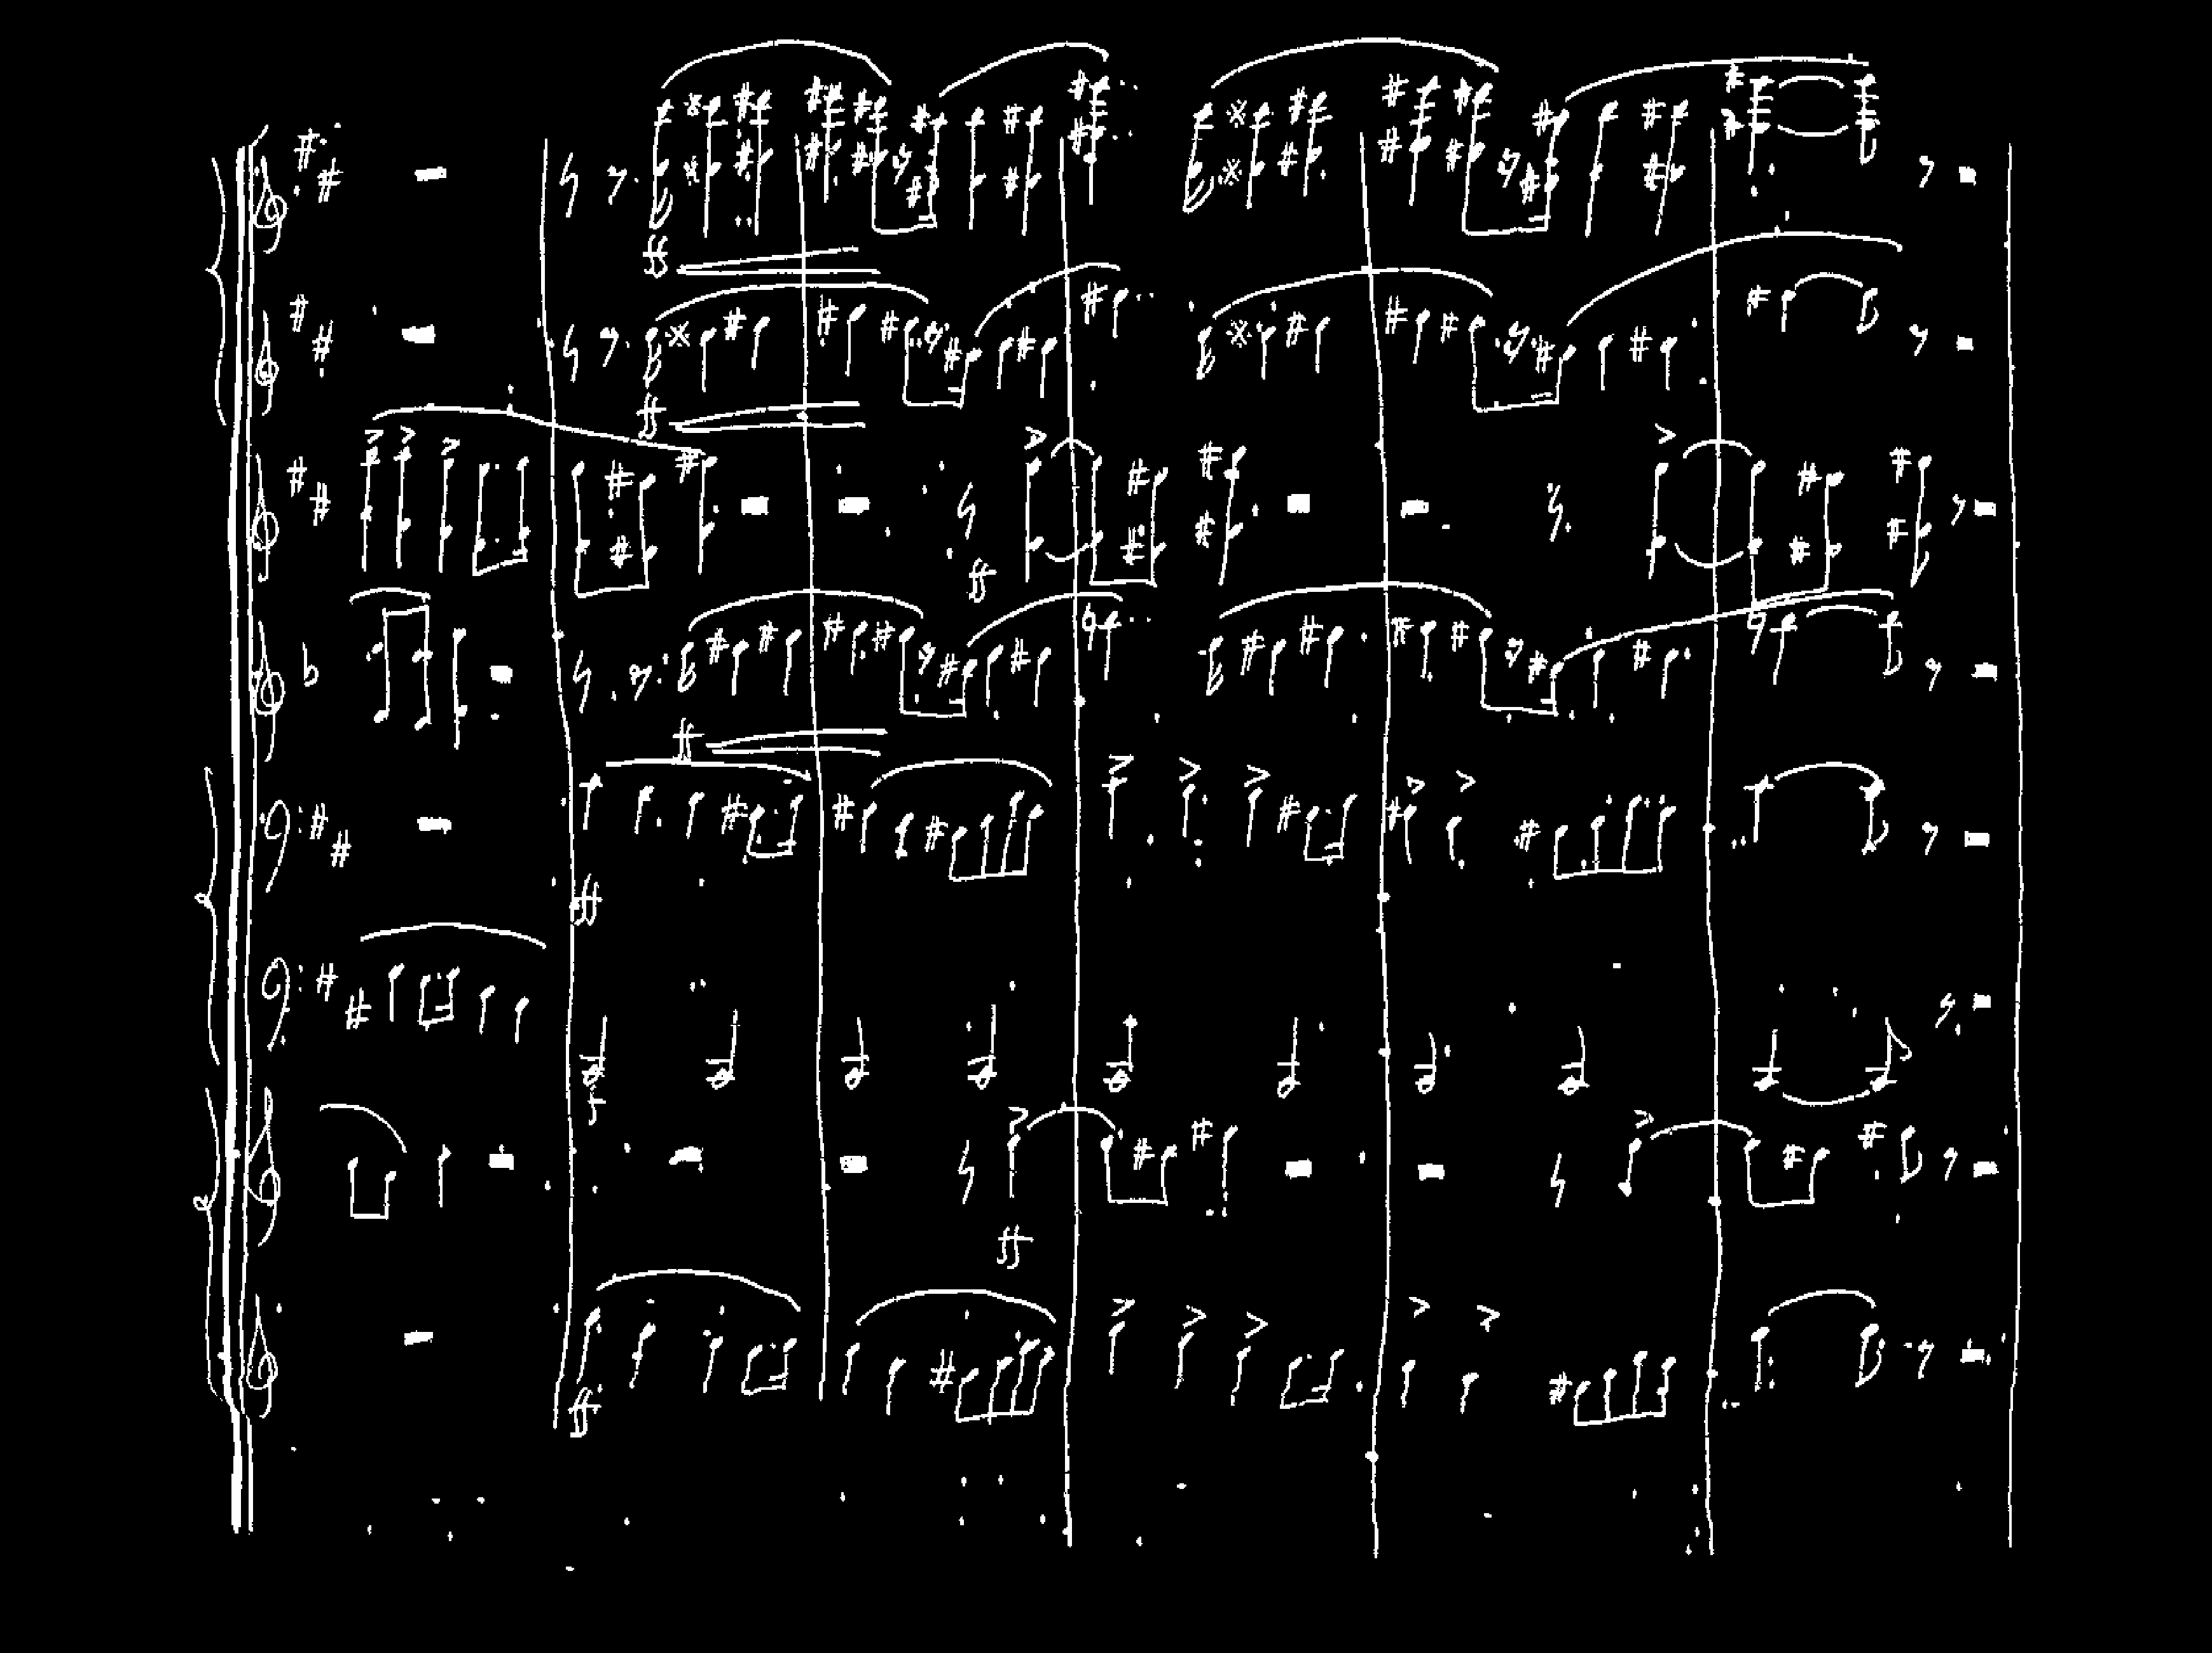 ff
ff
ff
ff
fff
f
ff
ff